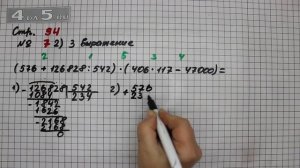 4DA5.com
Стр. 94
№ 7 2) 3 Выражение
2 1 5 3 4
(576 + 126828 : 542) · (406 · 117 - 47000) =
1) - 126828 | 542
1084 | 234
- 1842
1626
- 2168
2168
0
2) + 576
23